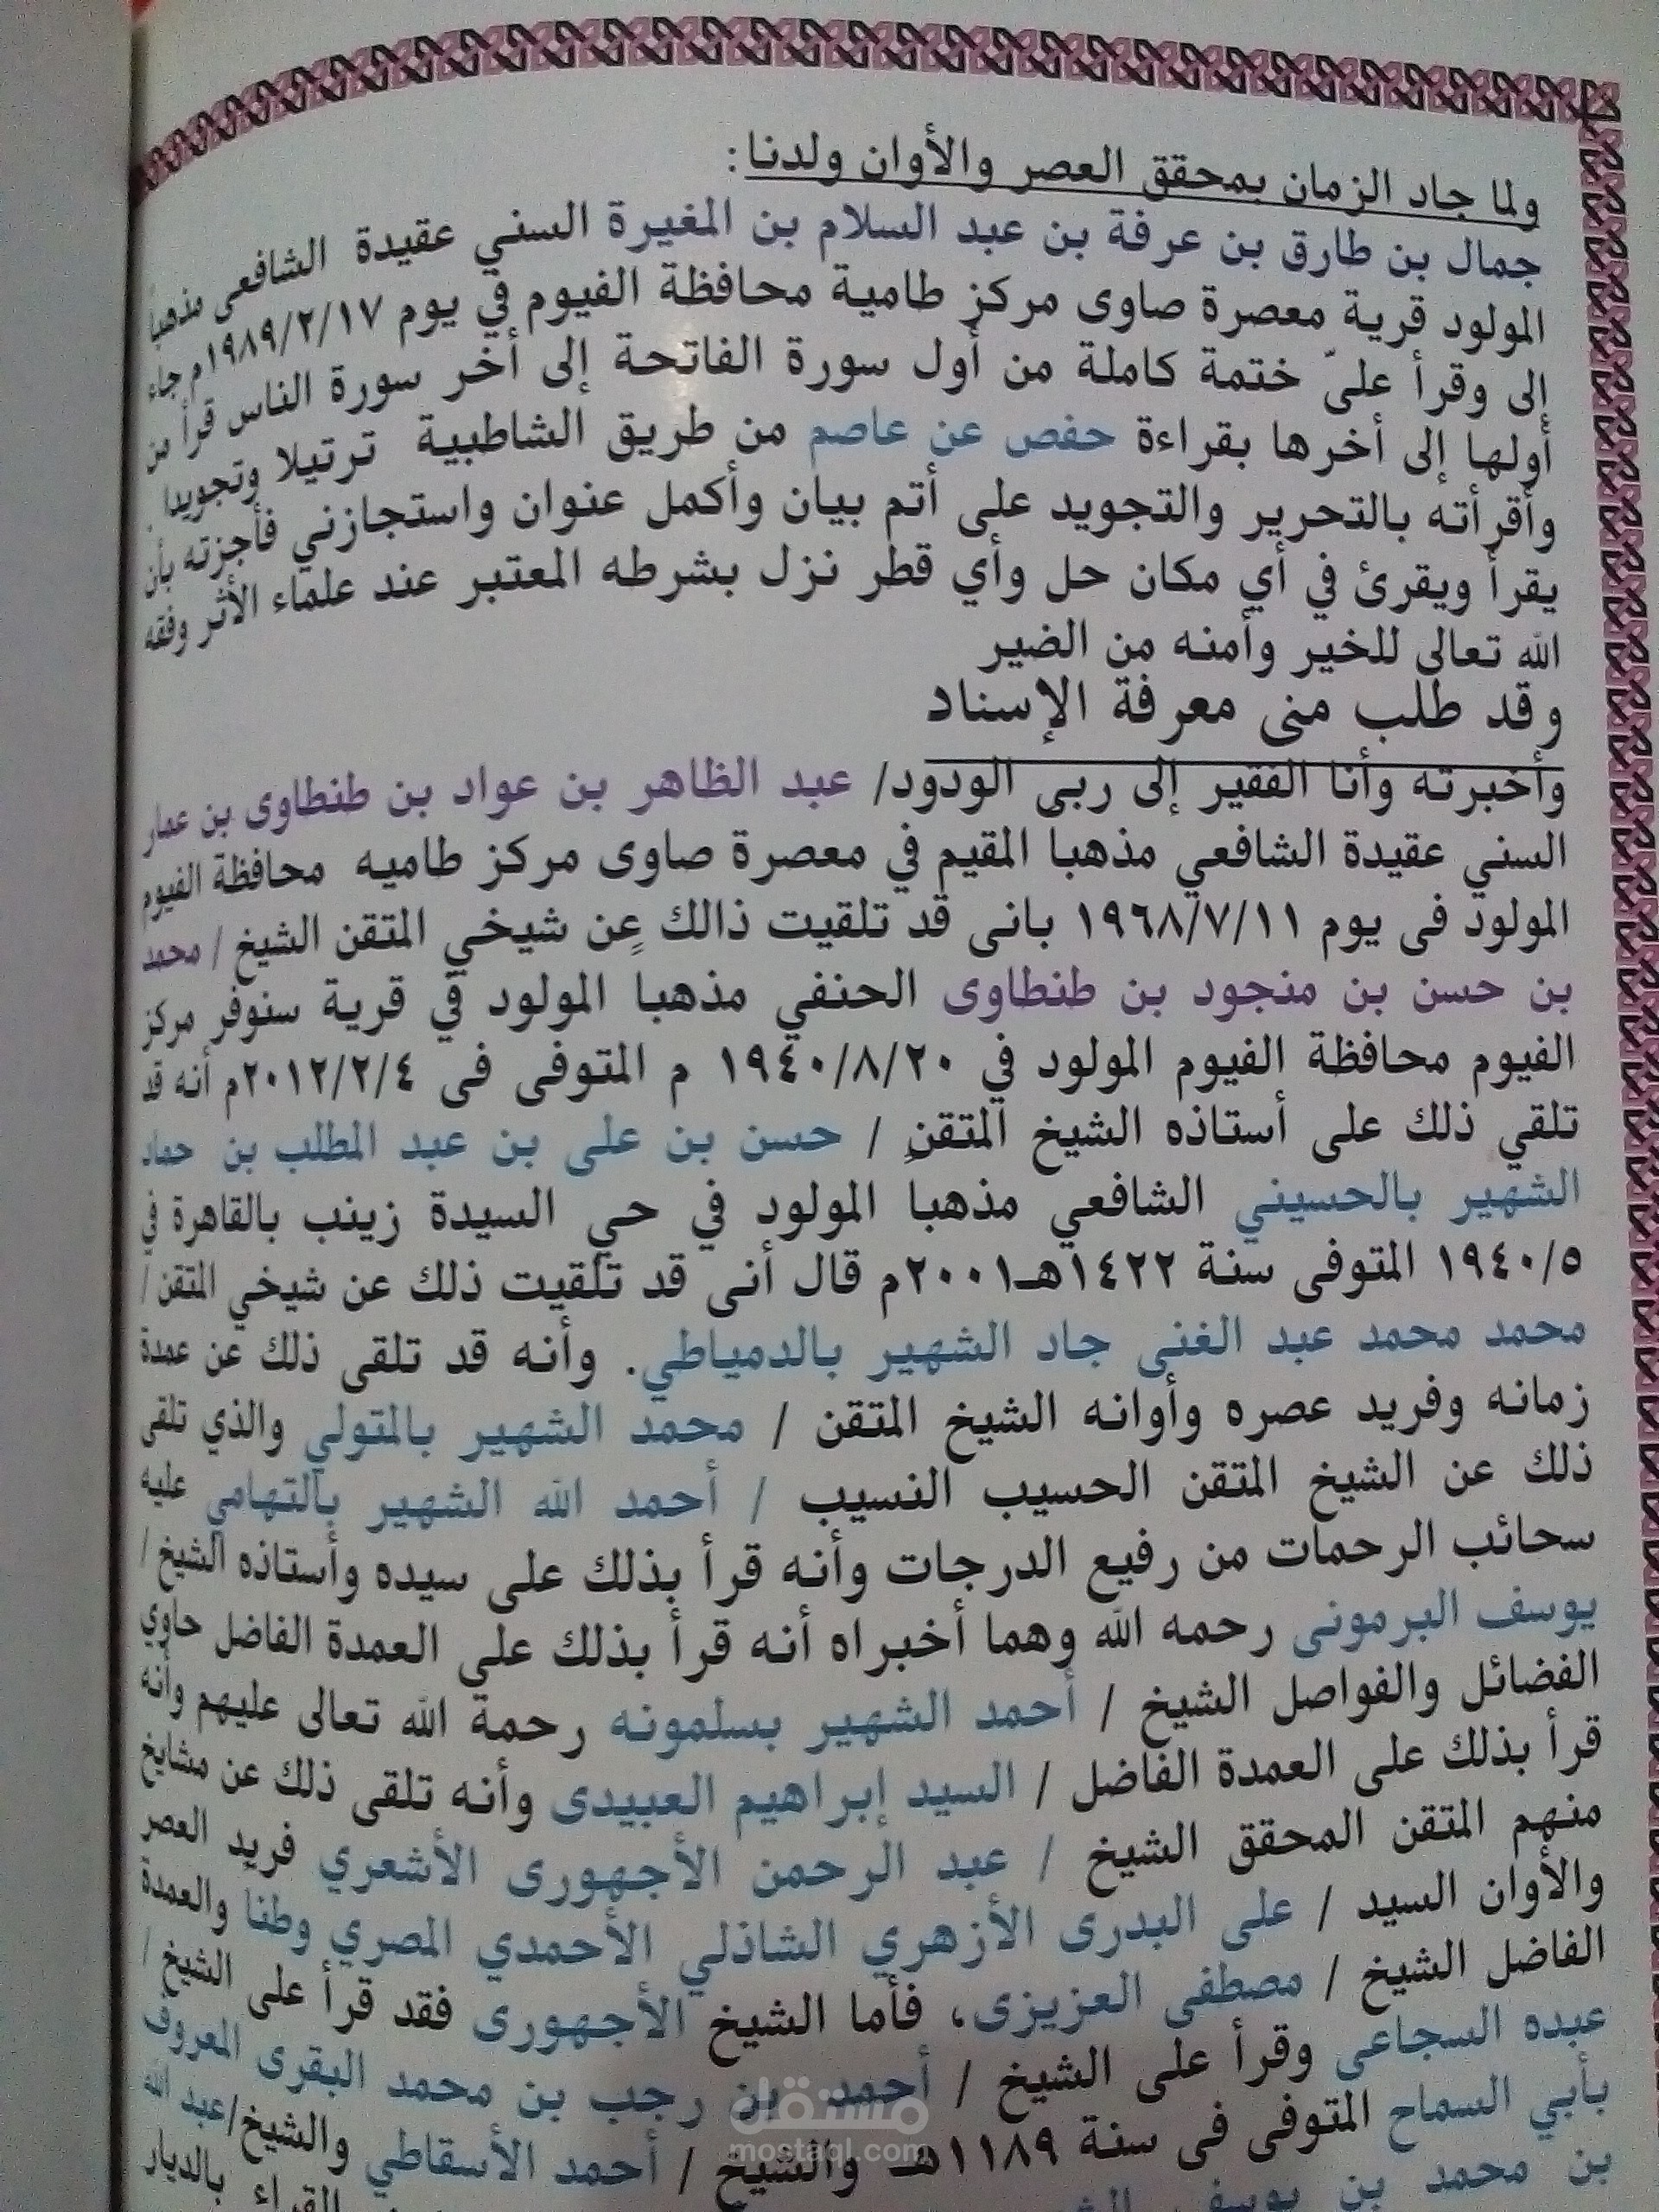 ولما جاد الزمان بمحقق العصر والأوان ولدنا:
جمال بن طارق بن عرفة بن عبد السلام بن المغيرة السني عقيدة الشافعى مذهبا
المولود قرية معصرة صاوى مركز طامية محافظة الفيوم في يوم ١٩٨٩/٢/١٧م جاء
إلى وقرأ علىّ ختمة كاملة من أول سورة الفاتحة إلى أخر سورة الناس قرأ من
أولها إلى أخرها بقراءة حفص عن عاصم من طريق الشاطبية ترتيلا وتجويدا
وأقرأته بالتحرير والتجويد على أتم بيان وأكمل عنوان واستجازني فأجزته بأن
يقرأ ويقرئ في أي مكان حل وأي قطر نزل بشرطه المعتبر عند علماء الأثر وفقه
الله تعالى للخير وأمنه من الضير
وقد طلب منى معرفة الإسناد
وأخبرته وأنا الفقير إلى ربى الودود/ عبد الظاهر بن عواد بن طنطاوى بن عمار
السني عقيدة الشافعي مذهبا المقيم في معصرة صاوى مركز طاميه محافظة الفيوم
المولود فى يوم ١٩٦٨/٧/١١ بانى قد تلقيت ذالك عن شيخي المتقن الشيخ / محمد
بن حسن بن منجود بن طنطاوى الحنفي مذهبا المولود في قرية سنوفر مركز
الفيوم محافظة الفيوم المولود في ١٩٤٠/٨/٢٠ م المتوفى فى ٢٠١٢/٢/٤م أنه قد
تلقي ذلك على أستاذه الشيخ المتقن / حسن بن على بن عبد المطلب بن حماد
الشهير بالحسيني الشافعي مذهبا المولود في حي السيدة زينب بالقاهرة في
١٩٤٠/٥ المتوفى سنة ١٤٢٢هـ٢٠٠١م قال أنى قد تلقيت ذلك عن شيخي المتقن /
محمد محمد عبد الغنى جاد الشهير بالدمياطي. وأنه قد تلقى ذلك عن عمدة
زمانه وفريد عصره وأوانه الشيخ المتقن / محمد الشهير بالمتولي والذي تلقى
ذلك عن الشيخ المتقن الحسيب النسيب / أحمد الله الشهير بالتهامي عليه
سحائب الرحمات من رفيع الدرجات وأنه قرأ بذلك على سيده وأستاذه الشيخ /
يوسف البرمونى رحمه الله وهما أخبراه أنه قرأ بذلك على العمدة الفاضل حاوي
الفضائل والفواصل الشيخ / أحمد الشهير بسلمونه رحمة الله تعالى عليهم وأنه
قرأ بذلك على العمدة الفاضل / السيد إبراهيم العبيدى وأنه تلقى ذلك عن مشايخ
منهم المتقن المحقق الشيخ / عبد الرحمن الأجهورى الأشعري فريد العصر
والأوان السيد / على البدرى الأزهري الشاذلي الأحمدي المصري وطنا والعمدة
الفاضل الشيخ / مصطفى العزيزى، فأما الشيخ الأجهورى فقد قرأ على الشيخ /
عبده السجاعى وقرأ على الشيخ / أحمد بن رجب بن محمد البقرى المعروف
بأبي السماح المتوفى فى سنة ١١٨٩هـ والشيخ / أحمد الأسقاطي والشيخ/عبد الله
بن محمد بن يوسف القراء بالديار
مستقل
mostaql.com